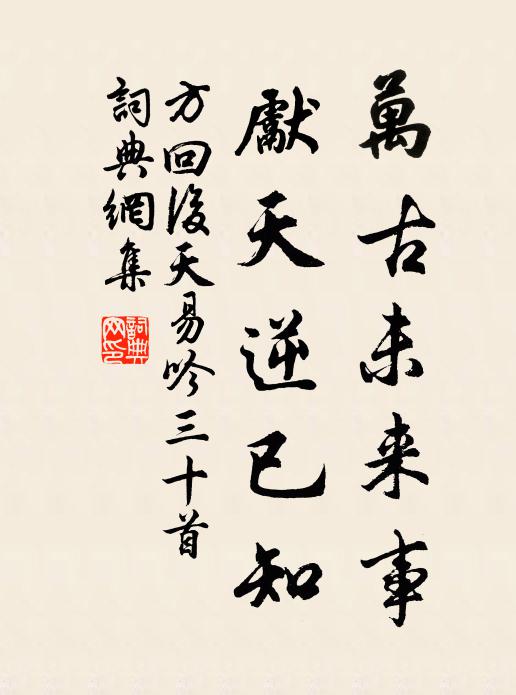 萬古未来事
獻天逆已知
方回後天易吟三十首
詞典網集
詞典网印